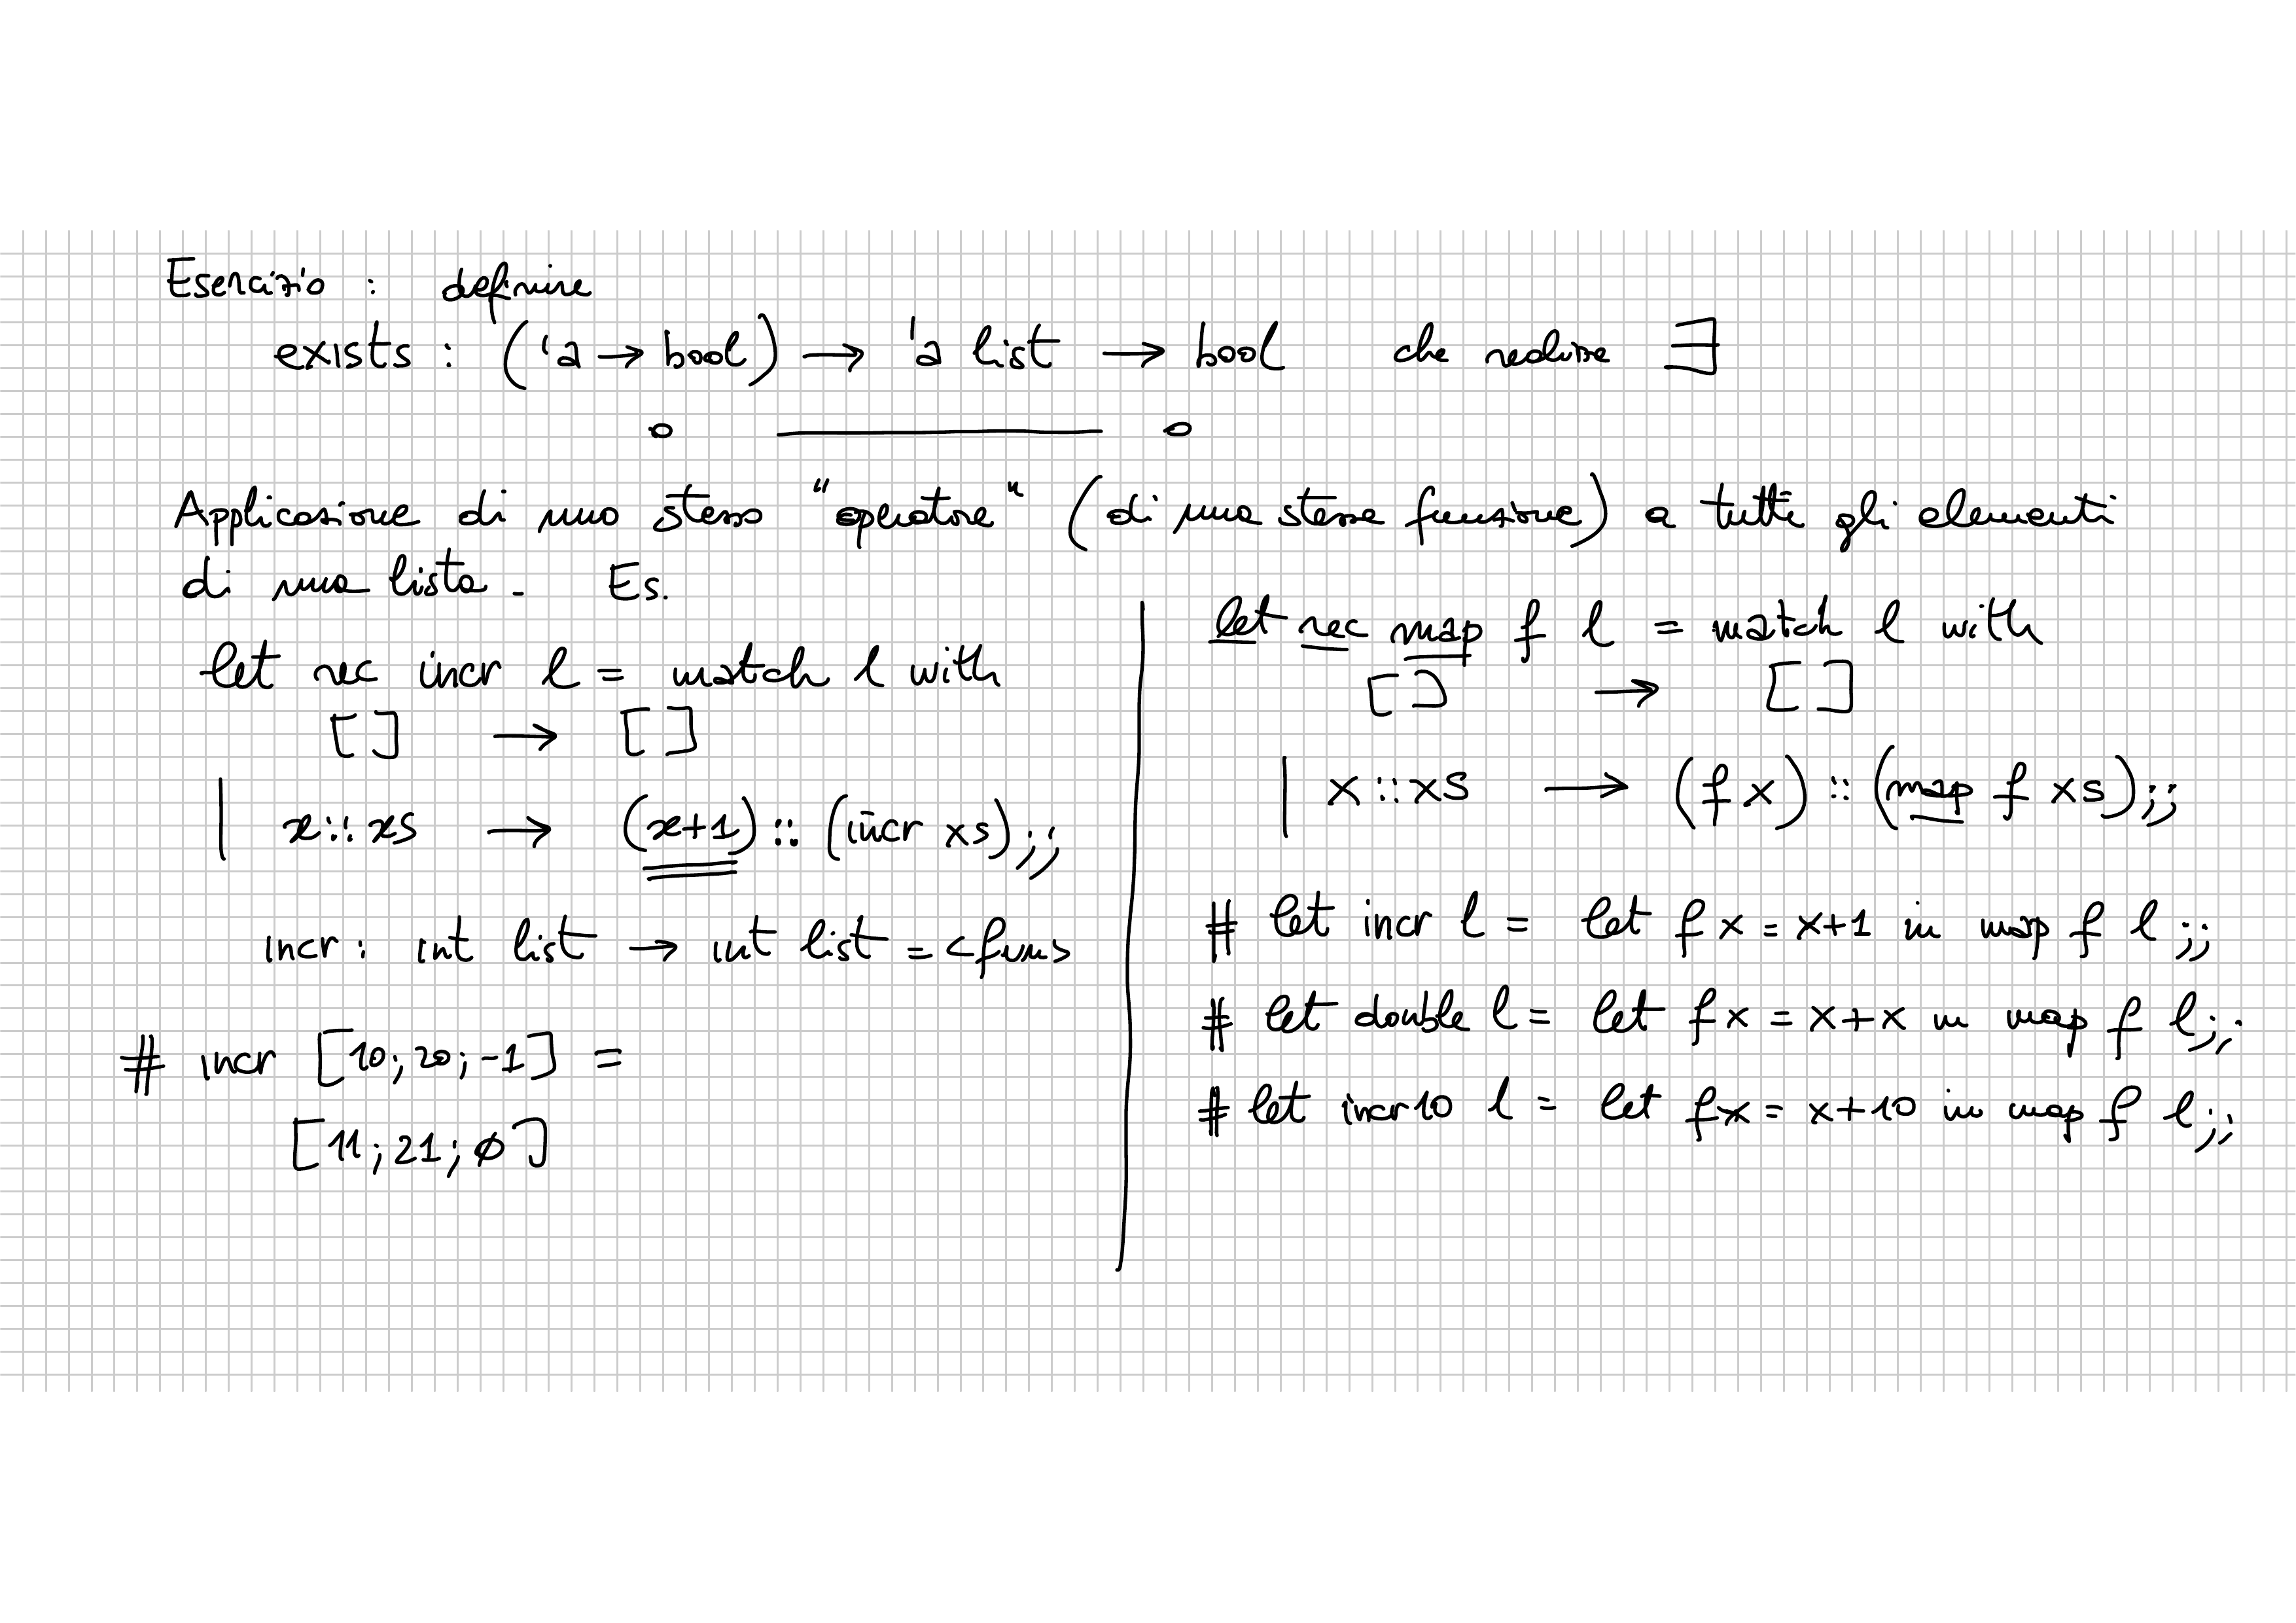 Esercizio : definire
exists : ('a → bool) → 'a list → bool che realizza ∃
Applicazione di uno stesso "operatore" (di una stessa funzione) a tutti gli elementi
di una lista. Es.
let rec incr l = match l with
[] → []
| x::xs → (x+1) :: (incr xs);;
incr: int list → int list = <fun>
# incr [10; 20; -1] =
[11; 21; 0]
let rec map f l = match l with
[] → []
| x::xs → (f x) :: (map f xs);;
# let incr l = let f x = x+1 in map f l ;;
# let double l = let f x = x+x in map f l;;
# let incr10 l = let f x = x+10 in map f l;;